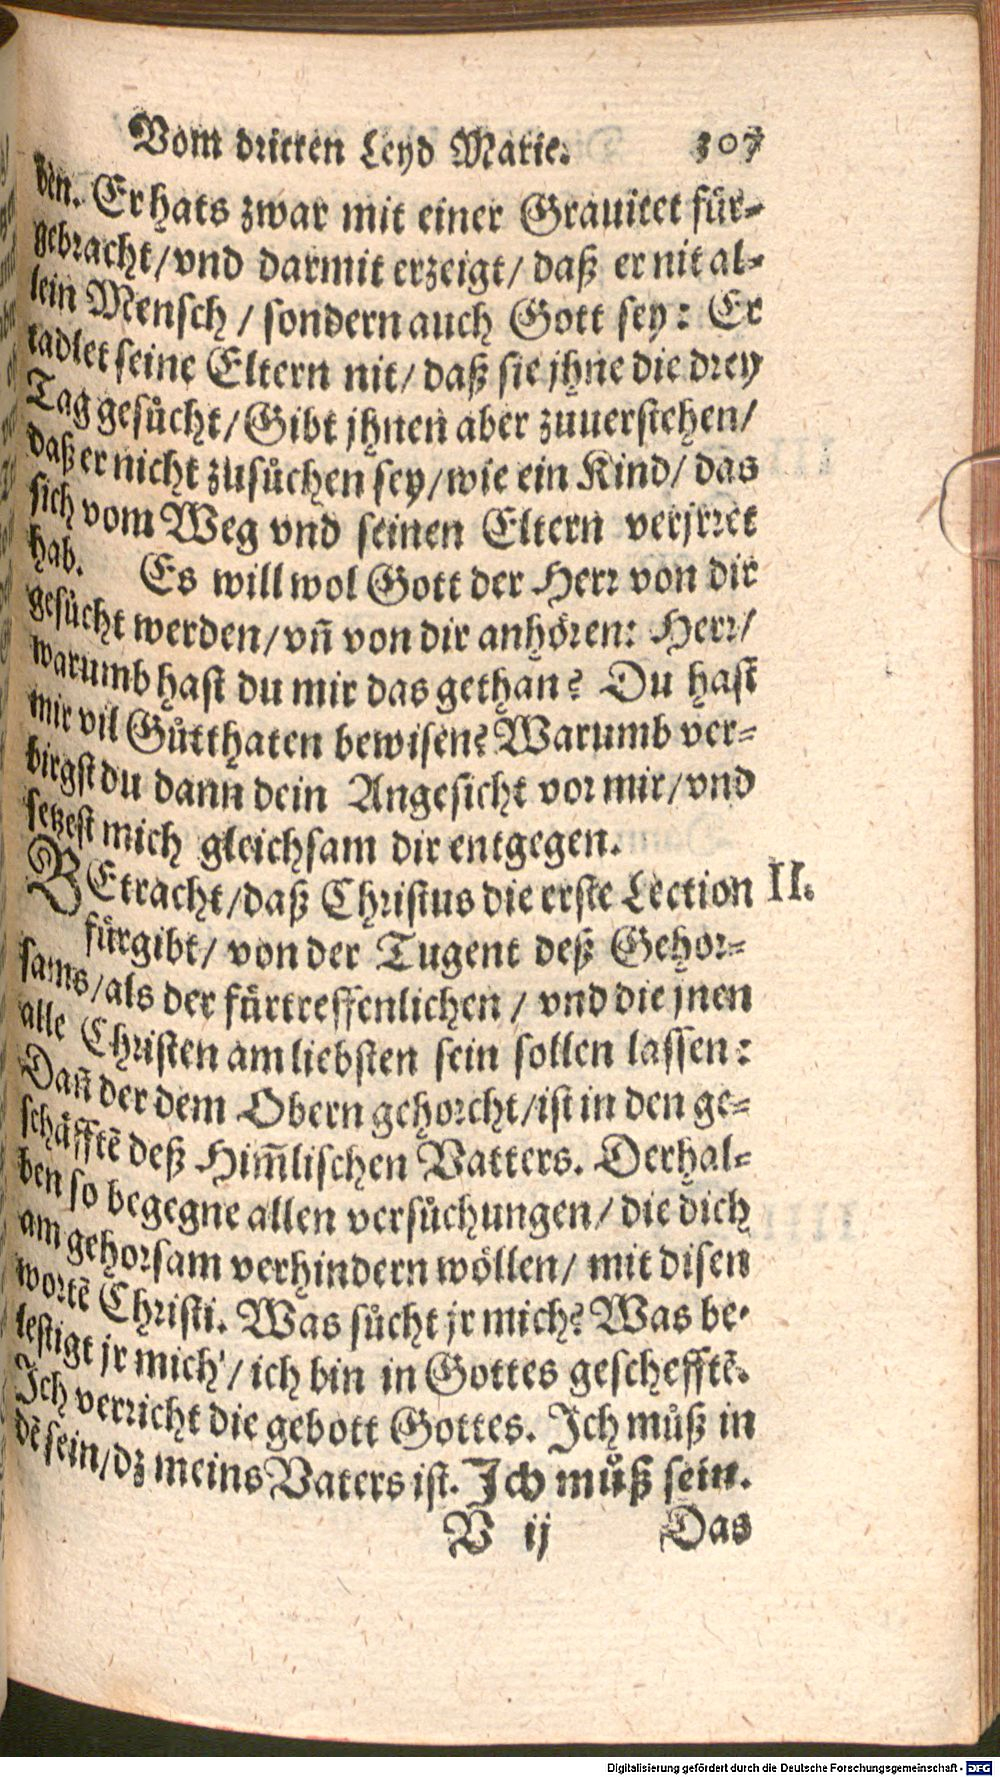 Vom dritten Leyd Marie. 307
den. Er hats zwar mit einer Grauitet für-
gebracht/ vnd darmit erzeigt/ daß er nit al-
lein Mensch/ sondern auch Gott sey: Er
tadlet seine Eltern nit/ daß sie jhne die drey
Tag gesůcht/ Gibt jhnen aber zuuerstehen/
daß er nicht zusůchen sey/ wie ein Kind/ das
sich vom Weg vnd seinen Eltern verjrret
hab. Es will wol Gott der Herr von dir
gesůcht werden/ vñ von dir anhören: Herr/
warumb hast du mir das gethan? Du hast
mir vil Gůtthaten bewisen? Warumb ver-
birgst du dann dein Angesicht vor mir/ vnd
setzest mich gleichsam dir entgegen.
BEtracht/ daß Christus die erste Lection II.
fürgibt/ von der Tugent deß Gehor-
sams/ als der fürtreffenlichen/ vnd die jnen
alle Christen am liebsten sein sollen lassen:
Dañ der dem Obern gehorcht/ ist in den ge-
schäfftẽ deß Him̃lischen Vatters. Derhal-
ben so begegne allen versůchungen/ die dich
am gehorsam verhindern wöllen/ mit disen
wortẽ Christi. Was sůcht jr mich? Was be-
lestigt jr mich/ ich bin in Gottes geschefftẽ.
Ich verricht die gebott Gottes. Ich můß in
dẽ sein/ dz meins Vaters ist. Ich můß sein.
V ij Das
Digitalisierung gefördert durch die Deutsche Forschungsgemeinschaft - DFG